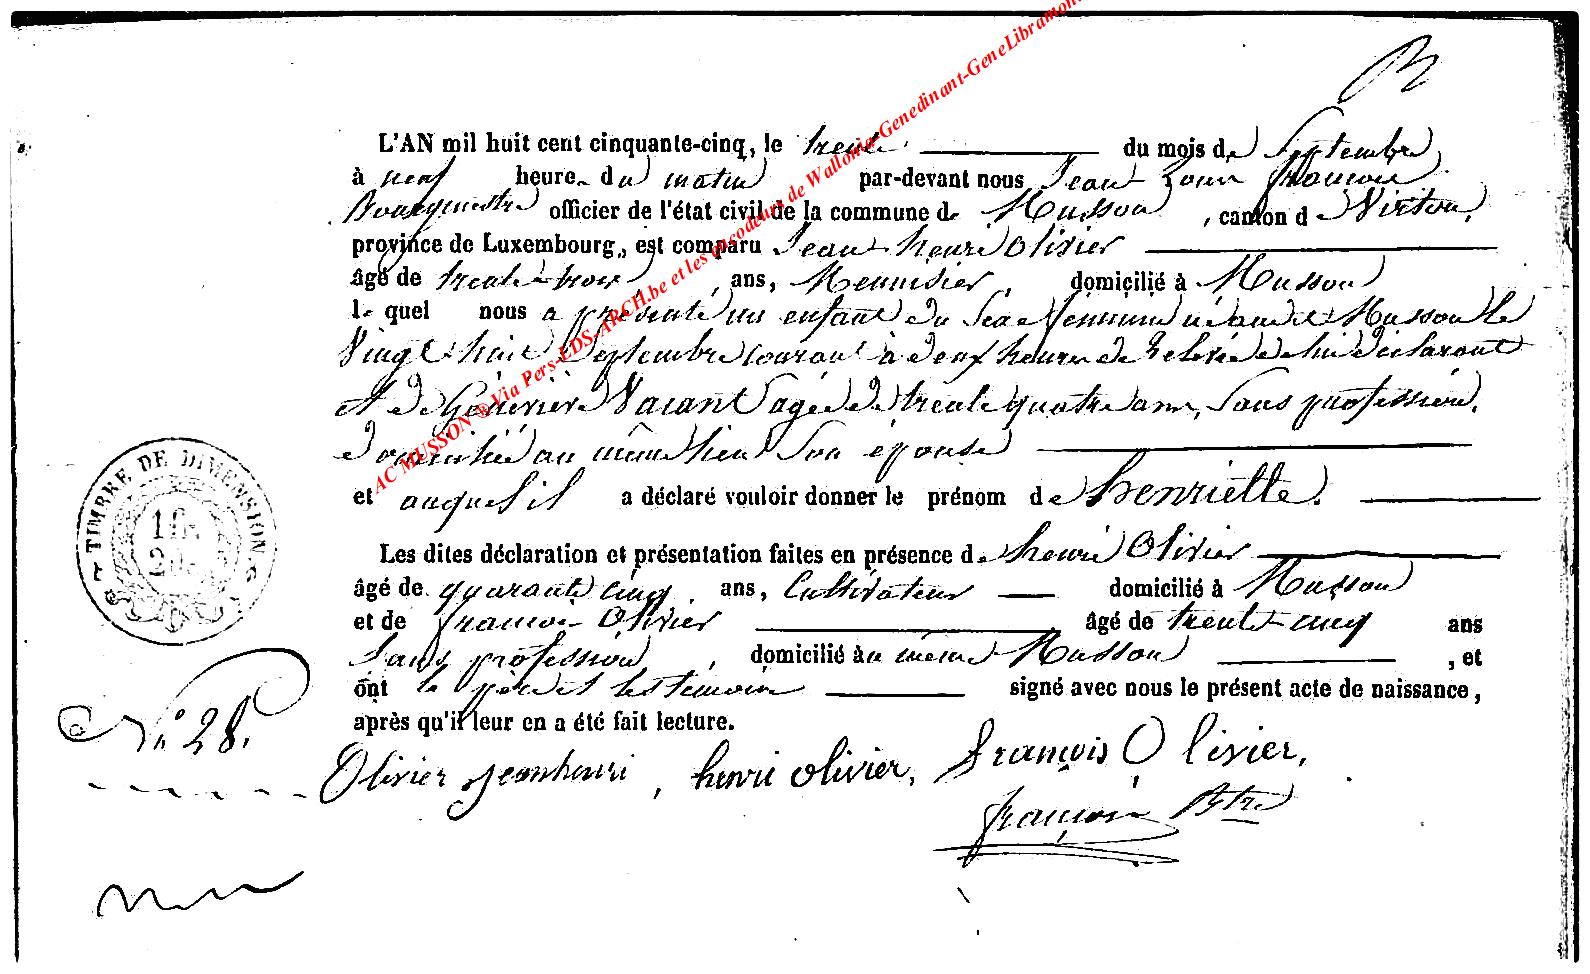 L'AN mil huit cent cinquante-cinq, le trente du mois de Septembre
à neuf heure du matin par-devant nous Jean Louis François
Bourgmestre officier de l'état civil de la commune de Musson, canton de Virton,
province de Luxembourg, est comparu Jean henri Olivier
âgé de trente-trois, ans, Menuisier, domicilié à Musson
le quel nous a présenté un enfant du Sexe féminin née au dit Musson le
Vingt huit Septembre courant à deux heures de relevée de lui déclarant
et de Génevière Vacant agée de trente quatre ans, Sans profession,
domiciliée au même lieu Son épouse
et auquel il a déclaré vouloir donner le prénom de henriette.
Les dites déclaration et présentation faites en présence de henri Olivier
âgé de quarante cinq ans, Cultivateur domicilié à Musson
et de françois Olivier âgé de trente cinq ans
Sans profession, domicilié au même Musson, et
ont le père et les témoins signé avec nous le présent acte de naissance,
après qu'il leur en a été fait lecture.
Olivier jeanhenri, henri olivier, françois Olivier,
françois Btre
N° 28.
TIMBRE DE DIMENSION
AC MUSSON ® Via Pers-EDS-ARCH.be et les encodeurs de Wallonia-Genedinant-GeneLibramont